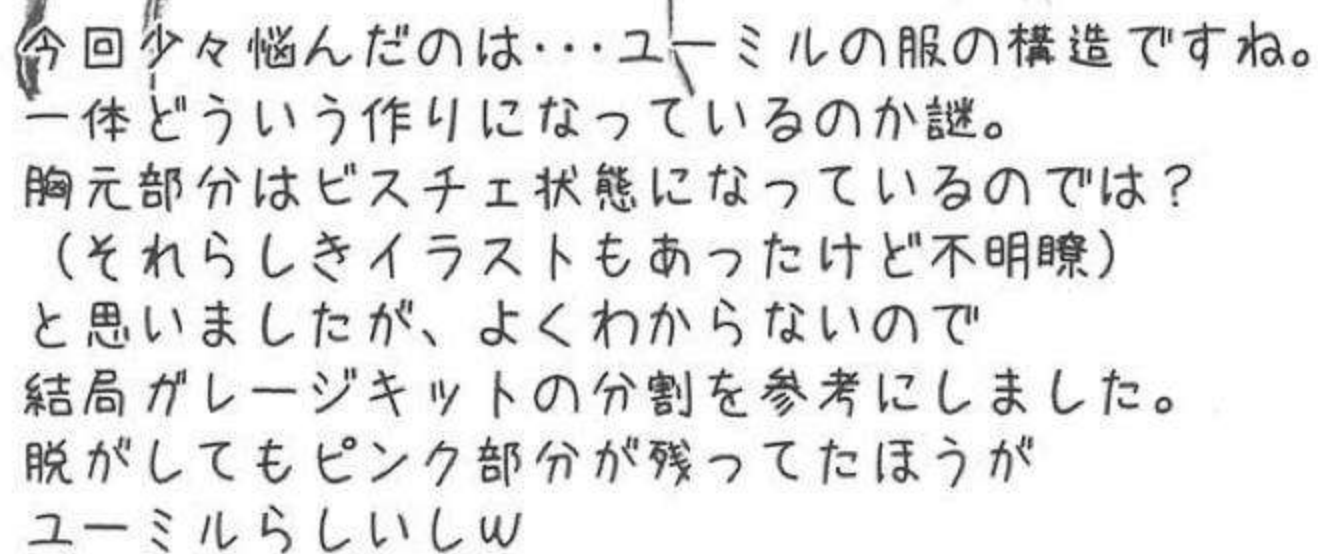 今回少々悩んだのは・・・ユーミルの服の構造ですね。
一体どういう作りになっているのか謎。
胸元部分はビスチェ状態になっているのでは？
（それらしきイラストもあったけど不明瞭）
と思いましたが、よくわからないので
結局ガレージキットの分割を参考にしました。
脱がしてもピンク部分が残ってたほうが
ユーミルらしいしw